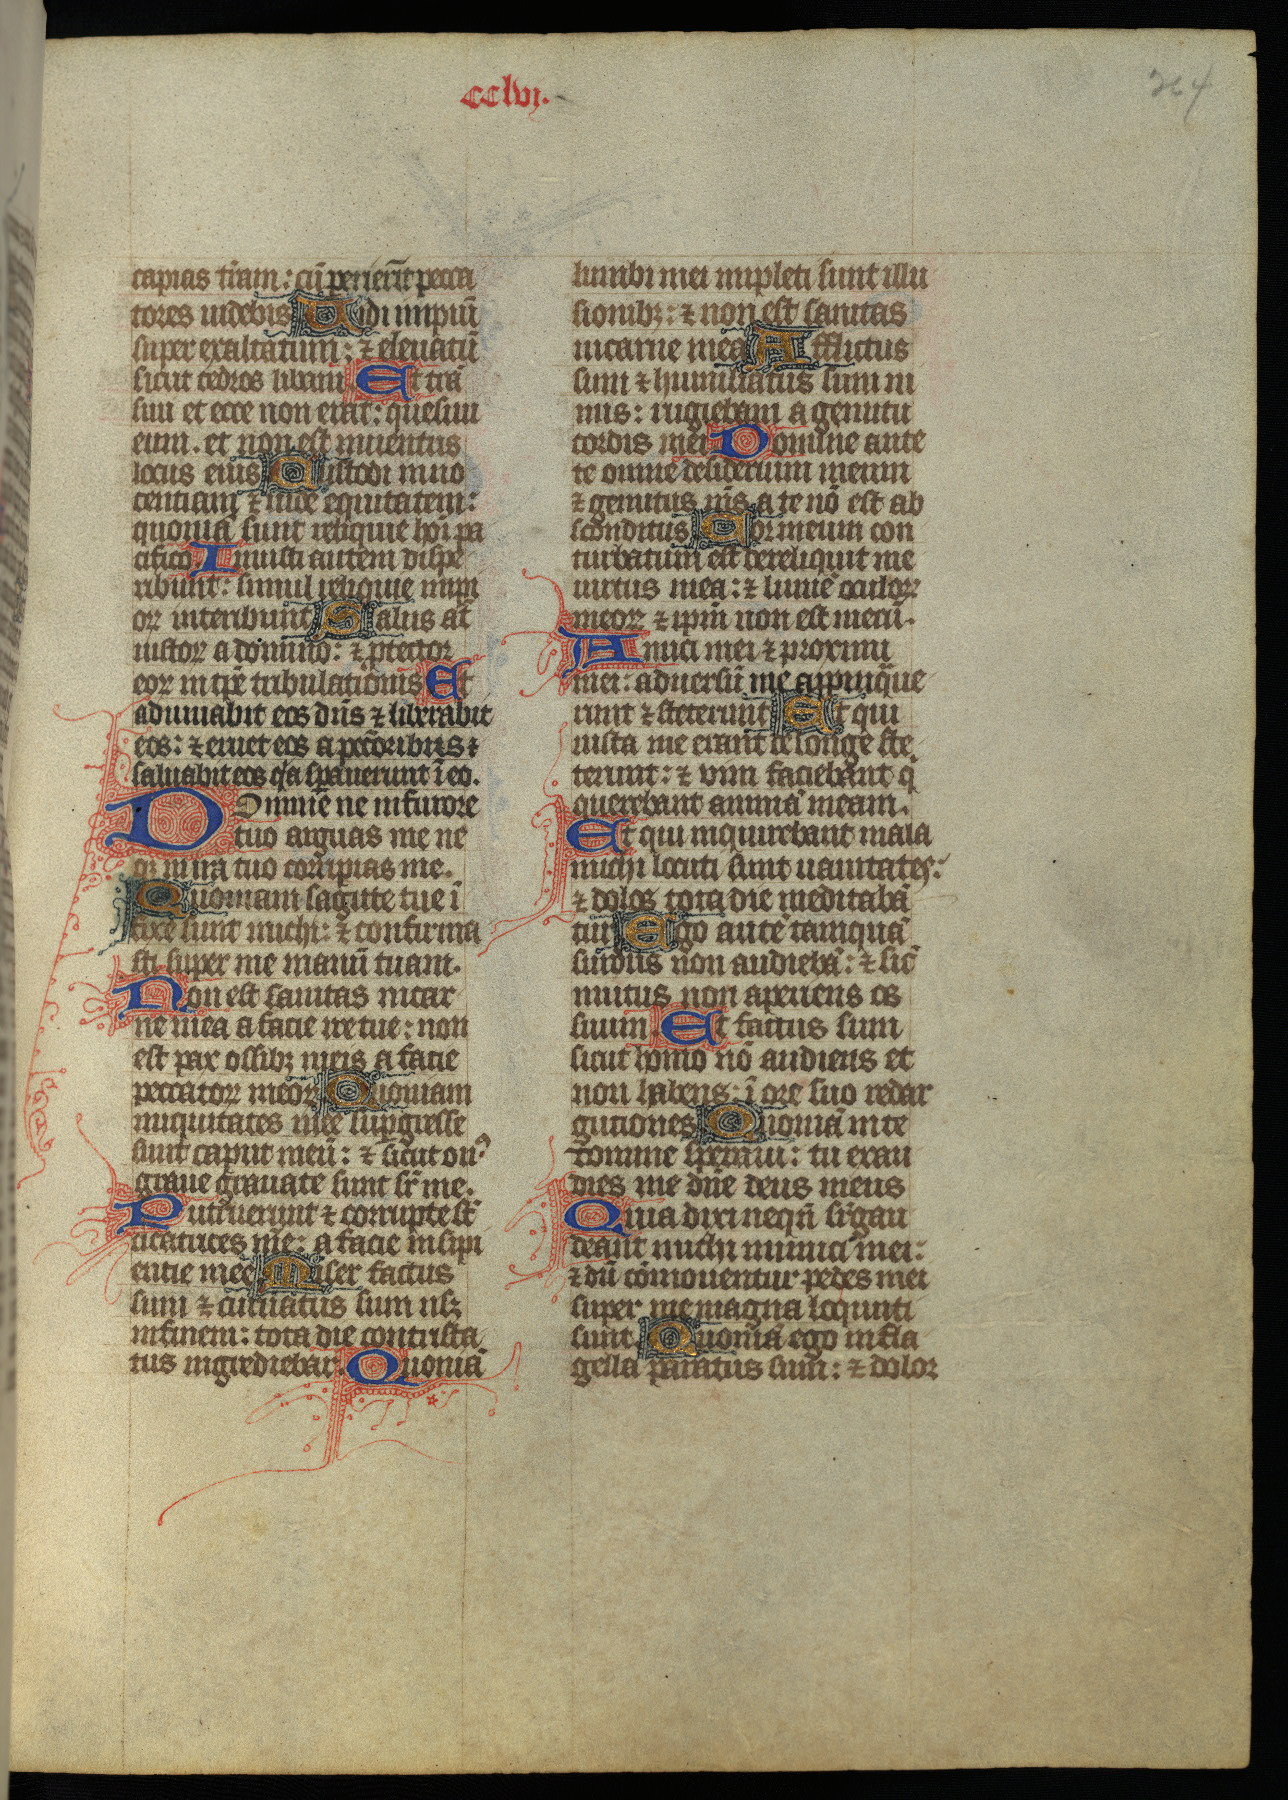 cclvi.
264
capias tr̄am: cū perierīt pecca
tores uidebis Uidi impiū
super exaltatum: ⁊ eleuatū
sicut cedros libani Et trā
siui et ecce non erat: quesiui
eum. et non est inuentus
locus eius Custodi inno
centiam ⁊ uide equitatem:
quoniā sunt reliquie hoī pa
cifico Iniusti autem dispe
ribunt: simul reliquie impi
oꝝ interibunt Salus aūt
iustoꝝ a domino: ⁊ ꝓtector
eoꝝ in tp̄e tribulationis Et
adiuuabit eos dn̄s ⁊ liberabit
eos: ⁊ eruet eos a peccōribus ⁊
saluabit eos q̓a sꝑauerunt ī eo.
Domine ne in furore
tuo arguas me ne
qꝫ in ira tuo corripias me.
Quoniam sagitte tue ī
fixe sunt michi: ⁊ confirma
sti super me manū tuam.
Non est sanitas in car
ne mea a facie ire tue: non
est pax ossibꝫ meis a facie
peccatoꝝ meoꝝ Quoniam
iniquitates mee suꝑgresse
sunt caput meū: ⁊ sicut onꝰ
graue grauate sunt sr̄ me.
Putruerunt ⁊ corrupte sūt
cicatrices mē: a facie insipi
entie mee Miser factus
sum ⁊ curuatus sum usꝫ
in finem: tota die contrista
tus ingrediebar. Quoniā
lumbi mei impleti sunt illu
sionibꝫ: ⁊ non est sanitas
in carne mea Afflictus
sum ⁊ humiliatus sum ni
mis: rugiebam a gemitu
cordis mei Domine ante
te omne desiderium meum
⁊ gemitus ms̄ a te nō est ab
sconditus Cor meum con
turbatum est dereliquit me
uirtus mea: ⁊ lumē oculoꝝ
meoꝝ ⁊ ipm̄ non est mecū.
Amici mei ⁊ proximi
mei: aduersū me appinque
runt ⁊ steterunt Et qui
iuxta me erant de longe ste
terunt: ⁊ vim faciebant q̄
querebant animā meam.
Et qui inquirebant mala
michi locuti sunt uanitates:
⁊ dolos tota die meditabā
tur Ego autē tamquā
surdus non audiebā: ⁊ sic̄
mutus non aperiens os
suum. Et factus sum
sicut homo nō audiens et
non habens: ī ore suo redar
gutiones Quoniā in te
domine speraui: tu exau
dies me dn̄e deus meus
Quia dixi neqn̄ sr̄gau
deant michi inimici mei:
⁊ dū cōmouentur pedes mei
super me magna locquuti
sunt. Quoniā ego in fla
gella paratus sum: ⁊ dolor